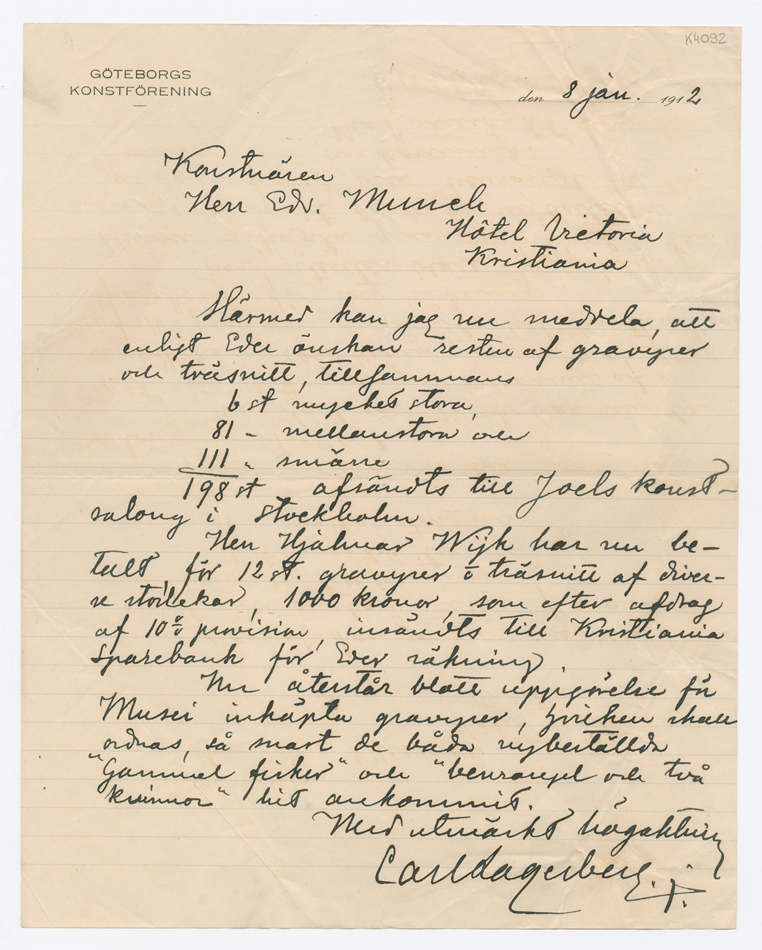 K4092
GÖTEBORGS
KONSTFÖRENING
den 8 jan. 1912
Konstnären
Herr Edv. Munch
Hôtel Victoria
Kristiania
Härmed kan jag nu meddela, att
enligt Eder önskan resten af gravyrer
och träsnitt, tillsammans
6 st mycket stora,
81 " mellanstora och
111 " smärre
198 st afsändts till Joels konst-
salong i Stockholm.
Herr Hjalmar Wijk har nu be-
talt för 12 st. gravyrer o träsnitt af diver-
se storlekar, 1000 kronor, som efter afdrag
af 10% provision, insändts till Kristiania
Sparebank för Eder räkning.
Nu återstår blott uppgörelse för
Musei inköpta gravyrer, hvilken skall
ordnas, så snart de båda nybeställda
"Gammel fisker" och "benrangel och två
kvinnor" hit ankommit.
Med utmärkt högaktning
Carl Lagerberg. j.